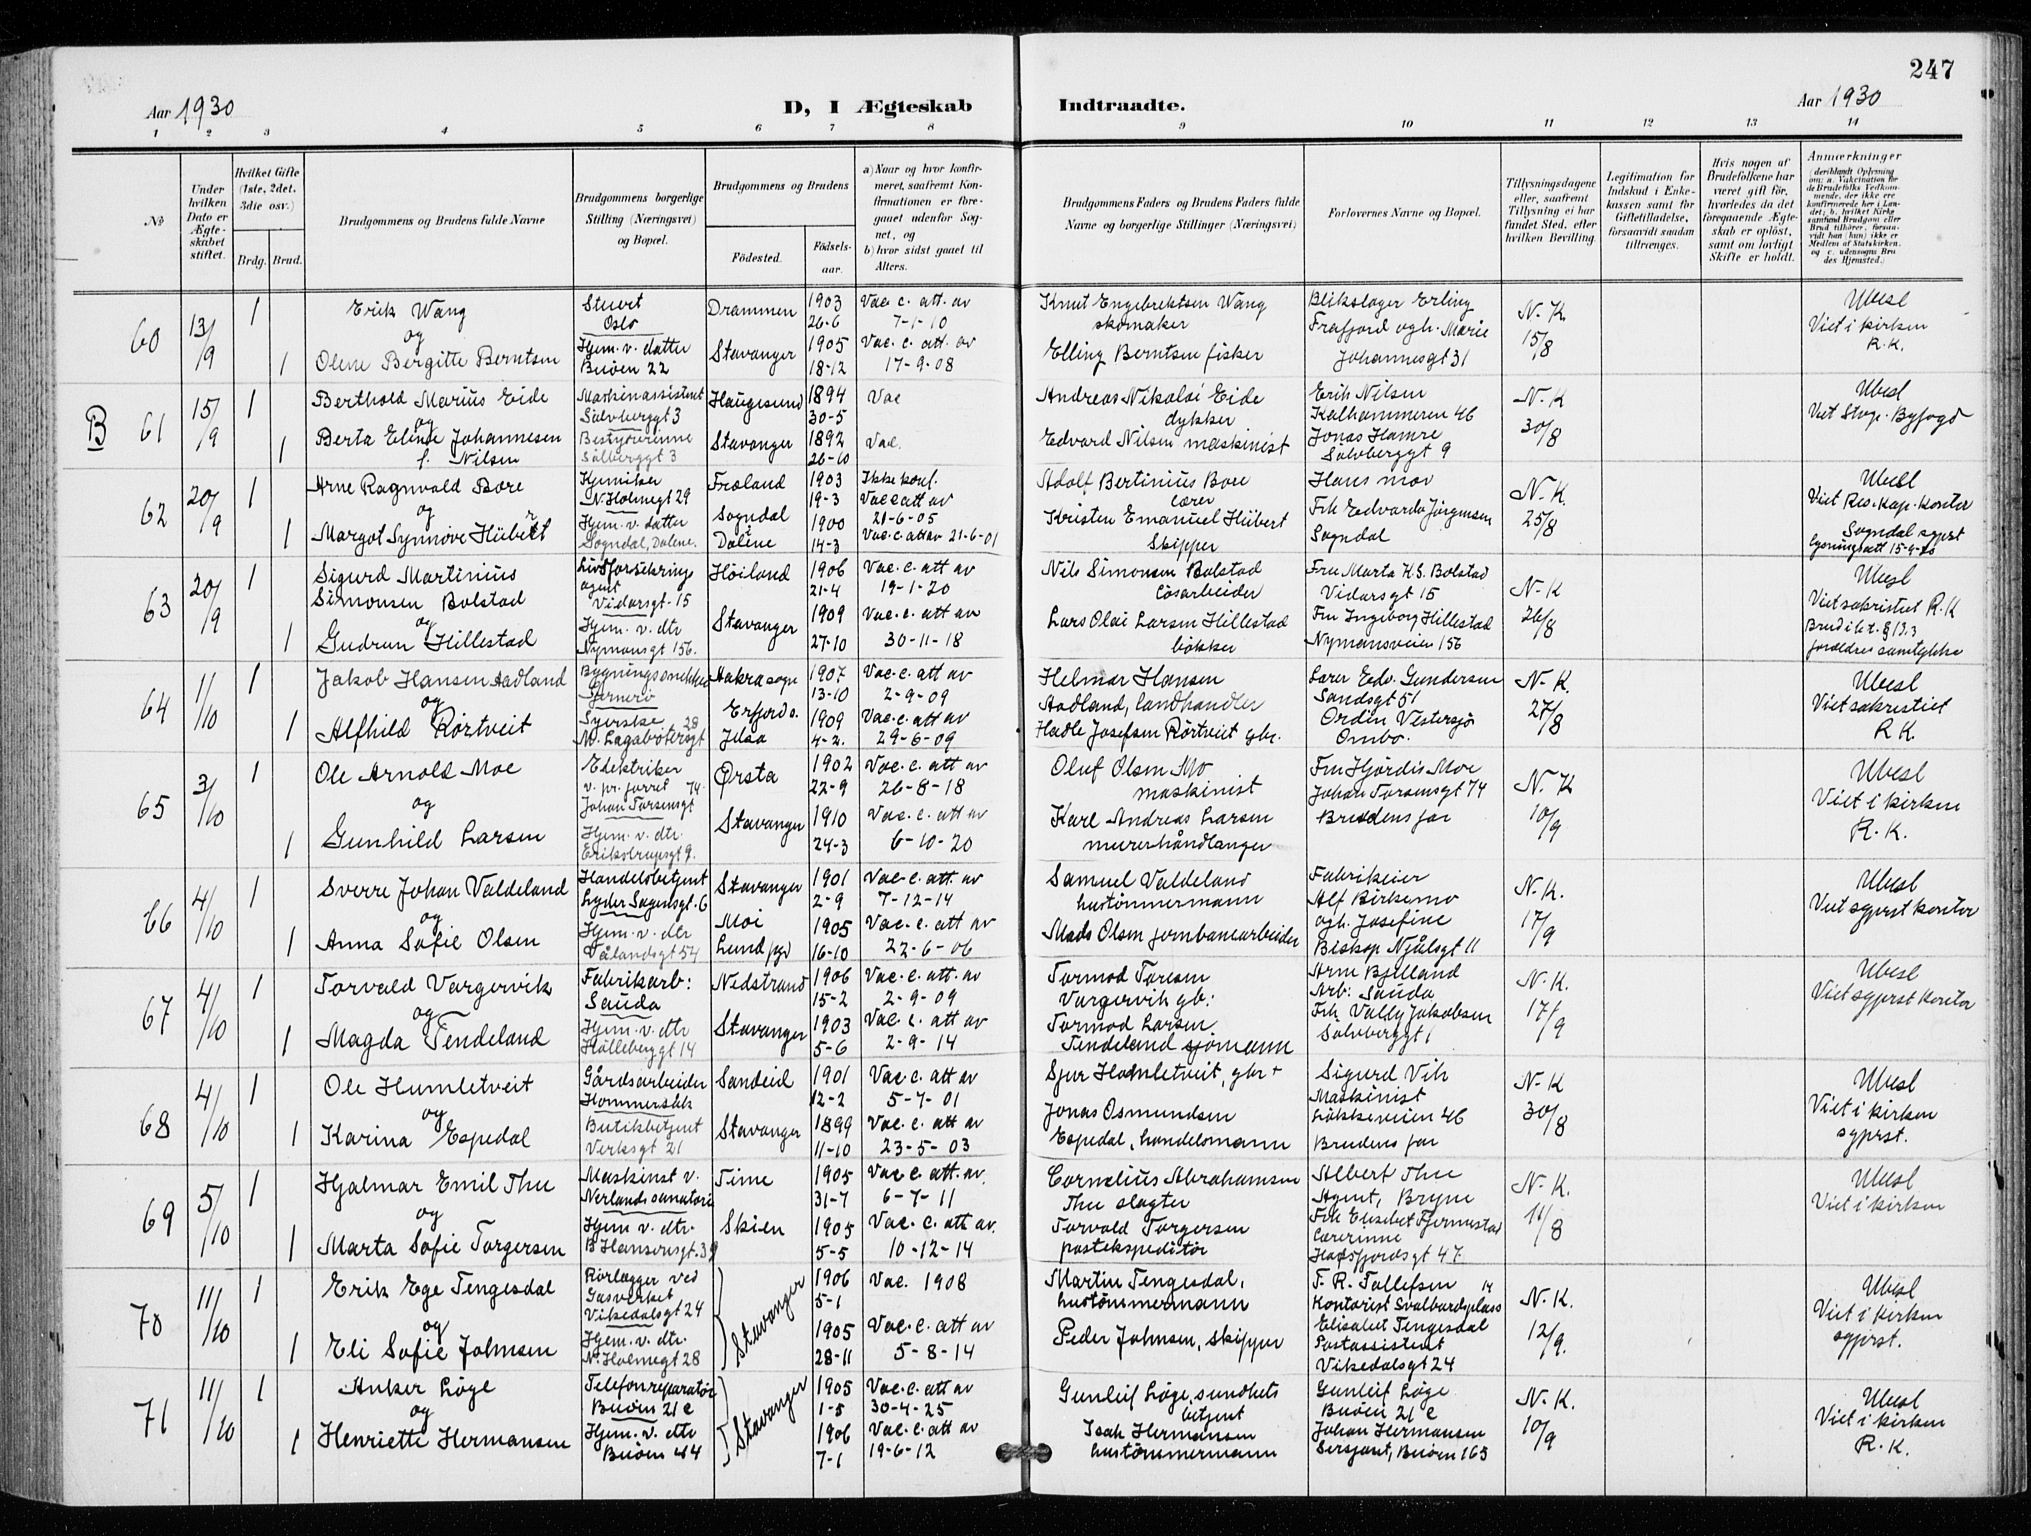 247
Aar 1930
D, I Ægteskab Indtraadte.
Aar 1930
1 2 3 4 5 6 7 8 9 10 11 12 13 14
No
Under hvilken Dato er Ægteskabet stiftet.
Hvilket Gifte (1ste, 2det, 3die osv.)
Brdg. Brud.
Brudgommens og Brudens fulde Navne
Brudgommens borgerlige Stilling (Næringsvei) og Bopæl.
Brudgommens og Brudens
Födested.
Födsels-aar.
a) Naar og hvor konfirmeret, saafremt Konfirmationen er foregaaet udenfor Sognet, og
b) hvor sidst gaaet til Alters.
Brudgommens Faders og Brudens Faders fulde Navne og borgerlige Stillinger (Næringsvei)
Forlovernes Navne og Bopæl.
Tillysningsdagene eller, saafremt Tillysning ei har fundet Sted, efter hvilken Bevilling.
Legitimation for Indskud i Enkekassen samt för Giftetilladelse, forsaavidt saadan tiltrænges.
Hvis nogen af Brudefolkene har været gift för, hvorledes da det foregaaende Ægteskab er oplöst, samt om lovligt Skifte er holdt.
Anmærkninger
(deriblandt Oplysning om: a. Vakcination for de Brudefolks Vedkommende, der ikke ere konfirmerede her i Landet; b. hvilket Kirkesamfund Brudgom eller Brud tilhörer, forsaavidt han (hun) ikke er Medlem af Statskirken, og c. udensogns Brudes Hjemsted.)
60 13/9 1 Erik Wang Stuert Oslo Drammen 1903 26-6 Vac. c. att. av 7-1-10 Knut Engebrektsen Wang skomaker Blikslager Erling Frafjord ogh. Marie N-K. Ubesl
og
1 Olene Bergitte Berntsen Hjem. v. datter Buöen 22 Stavanger 1905 18-12 Vac. c. att. av 17-9-08 Elling Berntsen fisker Johannesgt 31 15/8 Viet i kirken R.K.
B 61 15/9 1 Berthold Marius Eide Maskinassistent Sølvberggt 3 Haugesund 1894 30-5 Vac Andreas Nikolai Eide dykker Erik Nilsen Kalhammeren 46 N-K Ubesl
og
1 Berta Eline Johannesen f. Nilsen Bestyrerinne Sølberggt 3 Stavanger 1892 26-10 Vac. Edvard Nilsen maskinist Jonas Hamre Sølvberggt 9 30/8 Viet Stvgr. Byfogd
62 20/9 1 Arne Ragnvald Bore Kjemiker N. Holmegt 29 Frøland 1903 19-3 Ikke konf. Vac c att av 21-6-05 Adolf Bertinius Bore lærer Hans mor N-K. Ubesl
og
1 Margot Synnøve Hübert Hjem. v. datter Sogndal, Dalene. Sogndal Dalene 1900 14-3 Vac. c. att av 21-6-01 Kristen Emanuel Hübert Skipper Frk Edvarda Jørgensen Sogndal 25/8 Viet Res. kap. kontor Sogndal sgprst lysningsatt 15-9-30
63 20/9 1 Sigurd Martinius Simonsen Bolstad Livsforsikrings agent Vidarsgt. 15 Høiland 1906 21-4 Vac. c. att av 19-1-20 Nils Simonsen Bolstad løsarbeider Fru Marta K.S. Bolstad Vidarsgt 15 N-K Ubesl
og
1 Gudrun Hillestad Hjem. v. dtr Nymansgt 156. Stavanger 1909 27-10 Vac. c. att av 30-11-18 Lars Olai Larsen Hillestad bøkker Fru Ingeborg Hillestad Nymansveien 156 26/8 Viet sakristiet R.K § 13.3 foreldres samtykke
64 1/10 1 Jakob Hansen Aadland Bygningssnekker Jernerö Aakra sogn 1907 13-10 Vac. c. att av 2-9-09 Helmar Hansen Aadland, landhandler Lærer Edv. Gundersen Sandsgt 51 N-K. Ubesl
og
1 Alfhild Rörtveit Syerske M. Lagabøtersgt 28 Erfjord s. Jelsa 1909 4-2. Vac. c. att av 29-6-09 Hadle Josefsen Rörtveit gbr. Ordin Vestersjö Ombo. 27/8 Viet sakristiet R K.
65 3/10 1 Ole Arnold Moe Elektriker v. pr. forret. Johan Torsensgt 74. Ørsta 1902 22-9 Vac. c. att av 26-8-18 Oluf Olsen Mo maskinist Fru Hjördis Moe Johan Torsensgt 74 N. K Ubesl
og
1 Gunhild Larsen Hjem. v. dtr. Erikstrupsgt 9. Stavanger 1910 24-3 Vac. c. att av 6-10-20 Karl Andreas Larsen murerhåndlanger Brudens far 10/9 Viet i kirken R.K.
66 4/10 1 Sverre Johan Valdeland Handelsbetjent Lyder Sagensgt. 6 Stavanger 1901 2-9 Vac. c. att. av 7-12-14 Samuel Valdeland hustømmermann Fabrikeier Alf Birkemo N-K. Ubesl
og
1 Anna Sofie Olsen Hjem. v. dtr Vålandsgt 54 Moi Lund pgd 1905 16-10 Vac. c. att av 22-6-06 Mads Olsen jernbanearbeider ogh. Josefine Biskop Njålsgt 11 17/9 Viet sgprst kontor
67 4/10 1 Torvald Vargervik Fabrikarb: Sauda Nedstrand 1906 15-2 Vac. c. att. av 2-9-09 Tormod Toresen Vargervik gb: Arne Bjelland Arb: Sauda N-K. Ubesl
og
1 Magda Tendeland Hjem. v. dtr Hålleberggt 14 Stavanger 1903 5-6 Vac. c. att av 2-9-14 Tormod Larsen Tendeland sjömann Frk Vally Jakobsen Sølvberggt 1 17/9 Viet sgprst kontor
68 4/10 1 Ole Humletveit Gårdsarbeider Hommersåk Sandeid 1901 12-2 Vac. c. att av 5-7-01 Sjur Homletveit, gbr + Sigurd Vik Maskinist N-K Ubesl
og
1 Karina Espedal Butikbetjent Verksgt 21 Stavanger 1899 11-10 Vac. c. att av 23-5-03 Jonas Osmundsen Espedal, handelsmann Løkkeveien 46 Brudens far 30/8 Viet i kirken sgprst.
69 5/10 1 Hjalmar Emil Thu Maskinst v. Nerlands sanatorie Time 1905 31-7 Vac c. att. av. 6-7-11 Cornelius Abrahamsen Thu slagter Albert Thu Agent, Bryne N-K. Ubesl
og
1 Marta Sofie Torgersen Hjem v. dtr. B Hansensgt. 39 Skien 1905 5-5 Vac. c. att av. 10-12-14 Torvald Torgersen postekspeditør Frk Elisabet Fjermestad Lærerinne Hafsfjordsgt 47. 11/8 Viet i kirken
70 11/10 1 Erik Ege Tengesdal Rørlegger ved Gasverket Vikedalsgt 24 Stavanger 1906 5-1 Vac. 1908 Martin Tengesdal, hustømmermann T. R. Tollefsen Kontorist Svalbardsplass 14 N.K. Ubesl
og
1 Eli Sofie Johnsen Hjem. v. dtr. N. Holmegt 28 1905 28-11 Vac. c. att av 5-8-14 Peder Johnsen, Skipper Elisabet Tengesdal Postassistent Vikedalsgt 24 12/9. Viet i kirken sgprst.
71 11/10 1 Anker Løge Telefonreparatør Buöen 21 c Stavanger 1905 1-5 Vac. c. att av 30-4-25 Gunleif Løge, sundhets betjent Gunleif Løge Buöen 21 c N-K. Ubesl
og
1 Henriette Hermansen Hjem. v. dtr Buöen 44 1906 7-1 Vac. c. att av 19-6-12 Isak Hermansen hustømmermann Johan Hermansen Sersjant, Buöen 165 10/9 Viet i kirken R.K.